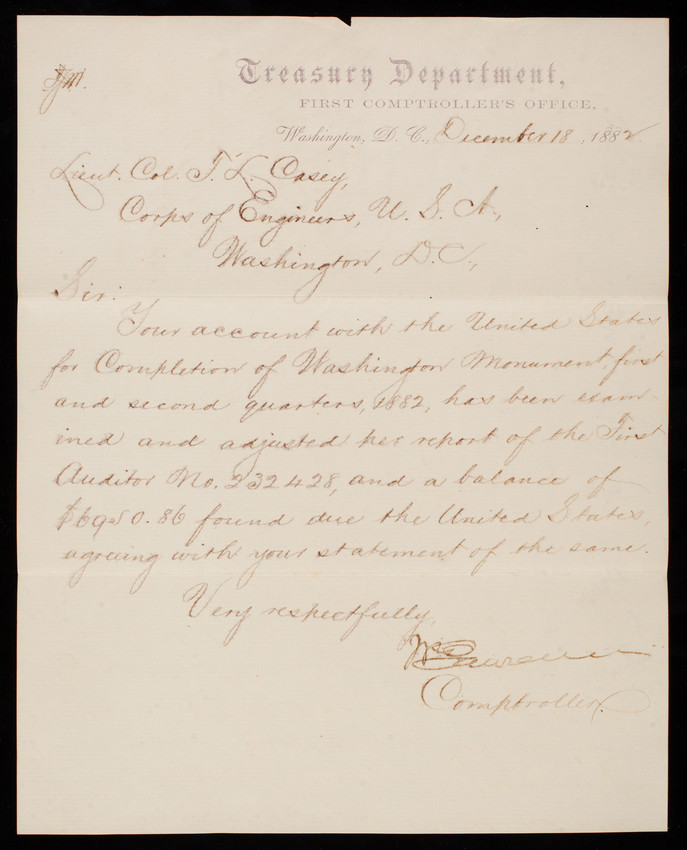 Treasury Department,
FIRST COMPTROLLER'S OFFICE,
Washington, D. C., December 18, 1882
Lieut. Col. T. L. Casey,
Corps of Engineers, U. S. A.,
Washington, D. C.,
Sir:
Your account with the United States
for Completion of Washington Monument, first
and second quarters, 1882, has been exam-
ined and adjusted per report of the First
Auditor No. 232428, and a balance of
$6950.86 found due the United States,
agreeing with your statement of the same.
Very respectfully,
Wm Lawrence
Comptroller.